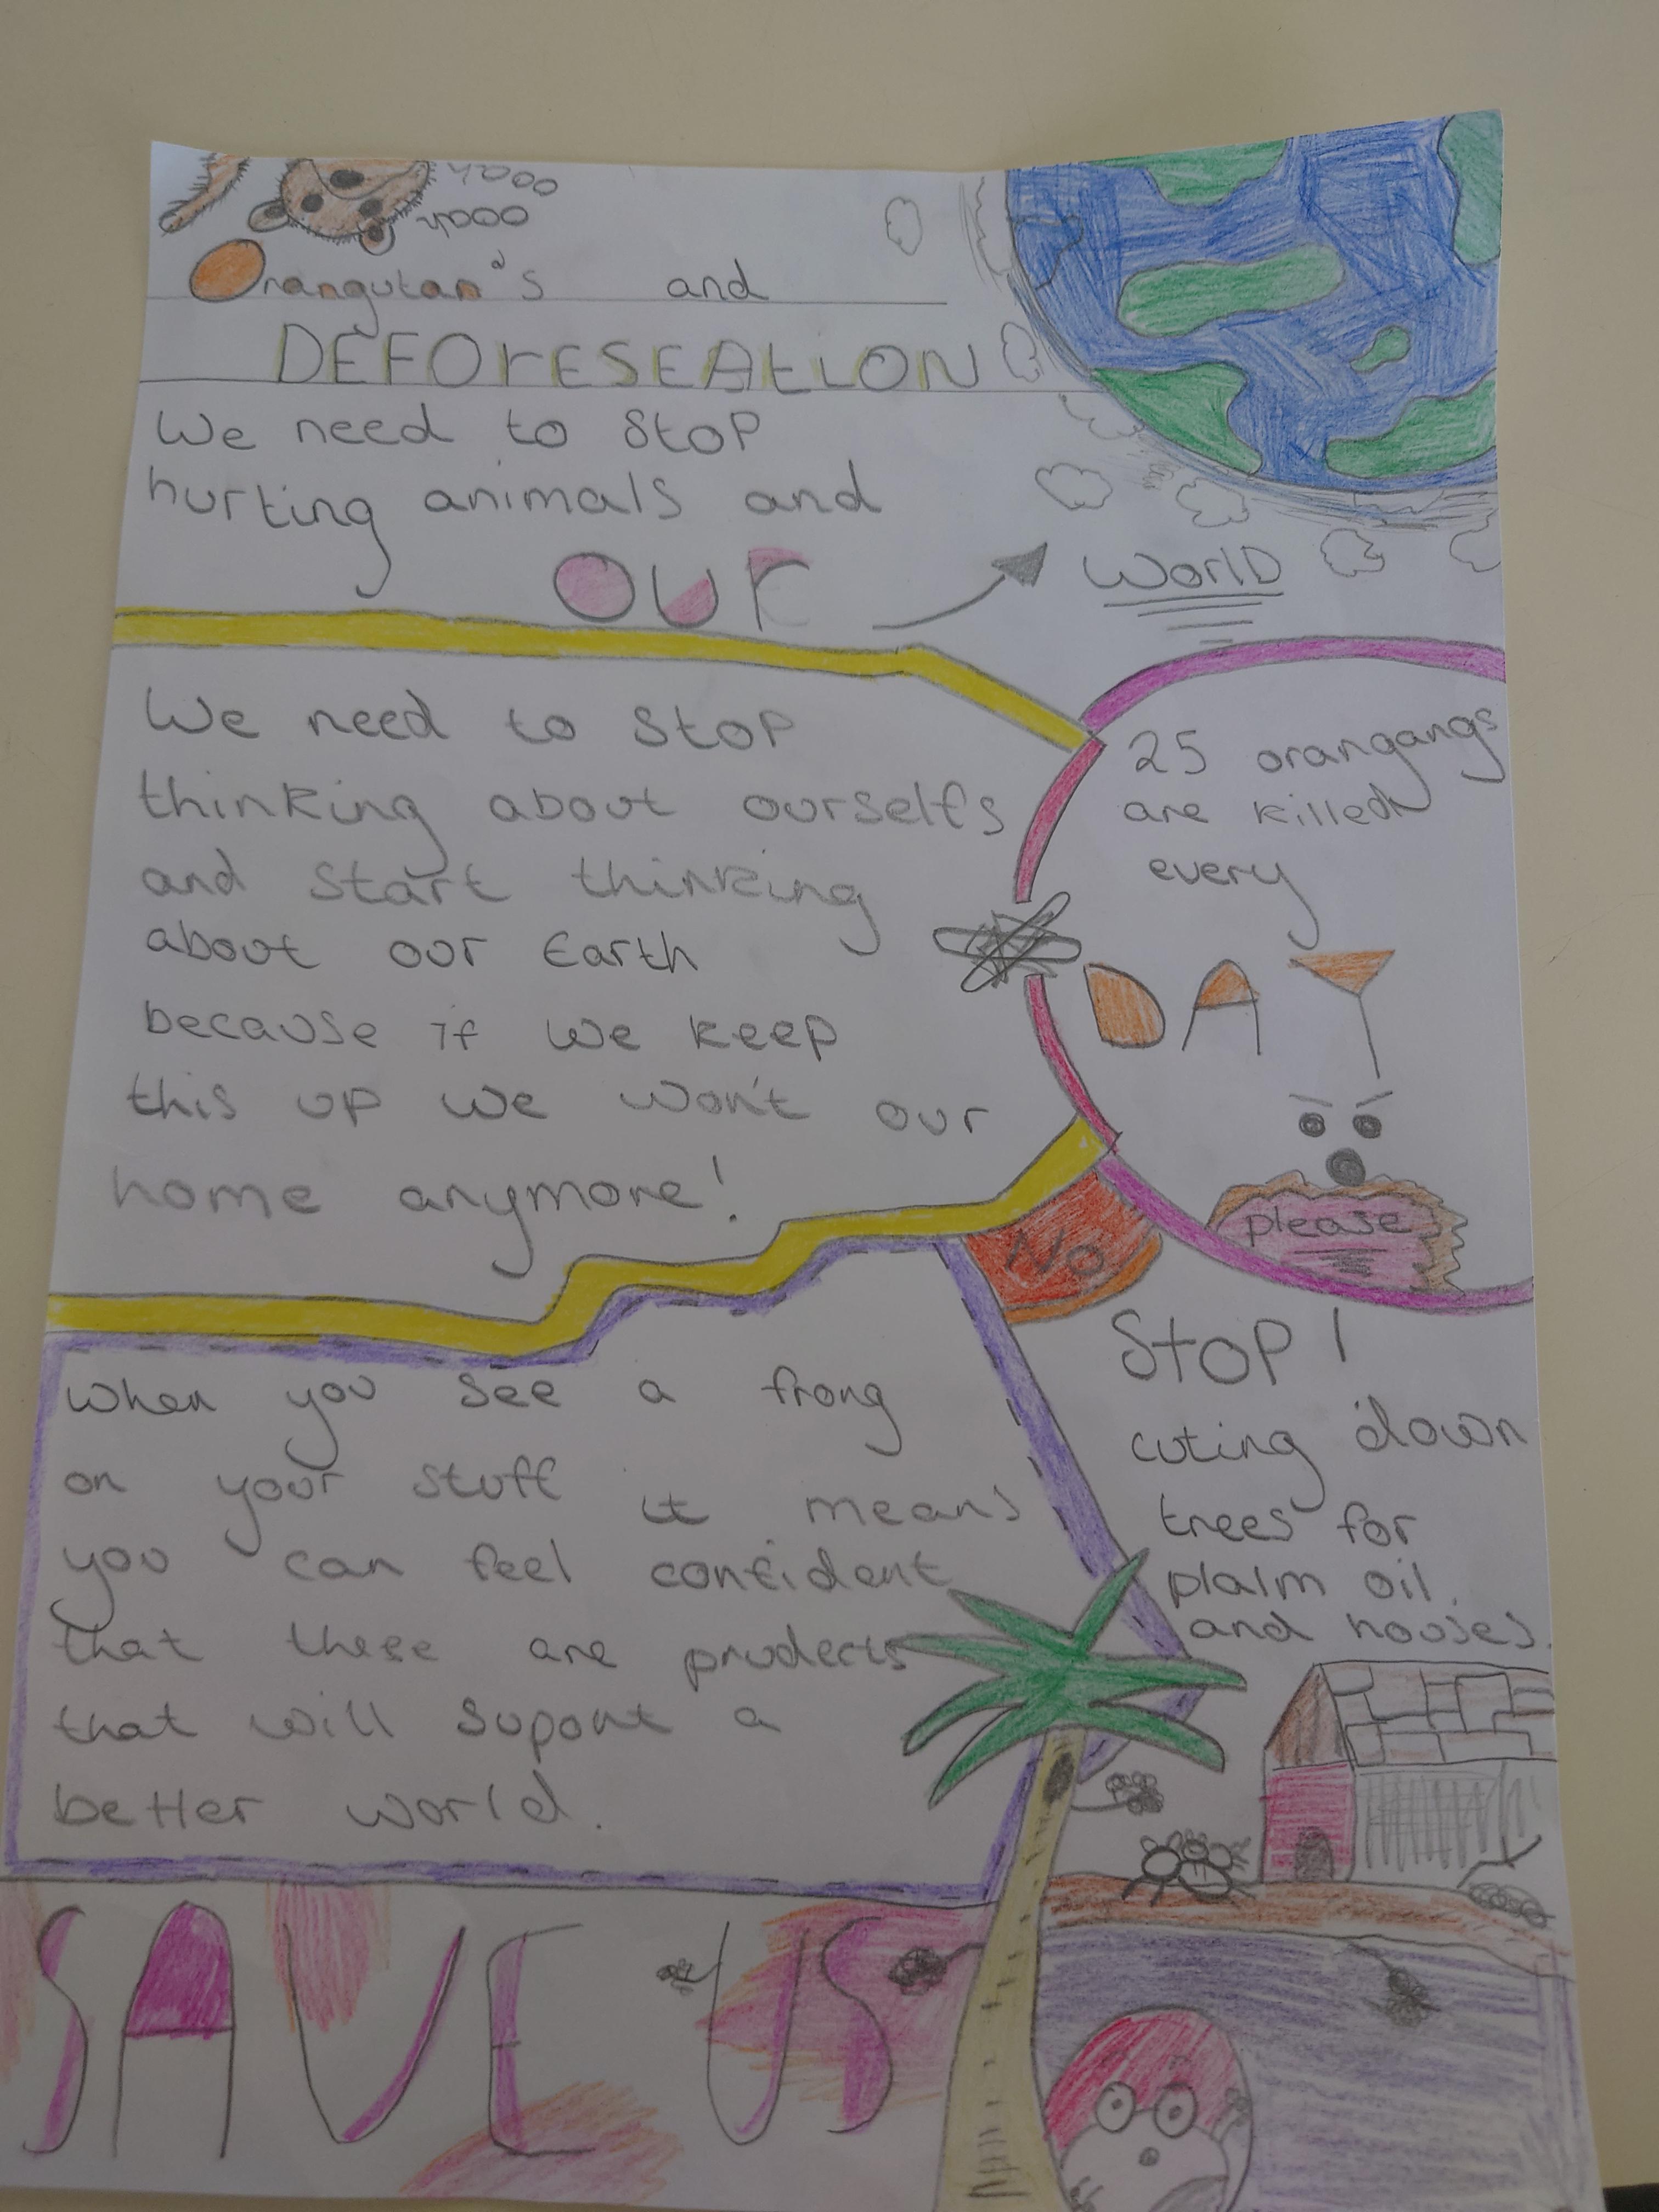 oooh
oooh
Orangutan's and
DEFOrESEAtiON
We need to StoP
hurting animals and
OUr
WorlD
We need to StoP
thinking about ourselfs
and start thinking
about our Earth
because if we keep
this up we won't our
home anymore!
25 orangangs
are killed
every
DAY
please
No
When you see a frong
on your stuff it means
you can feel confident
that these are prudects
that will suport a
better world.
StoP!
cuting down
trees for
plalm oil.
and houses.
SAVE US